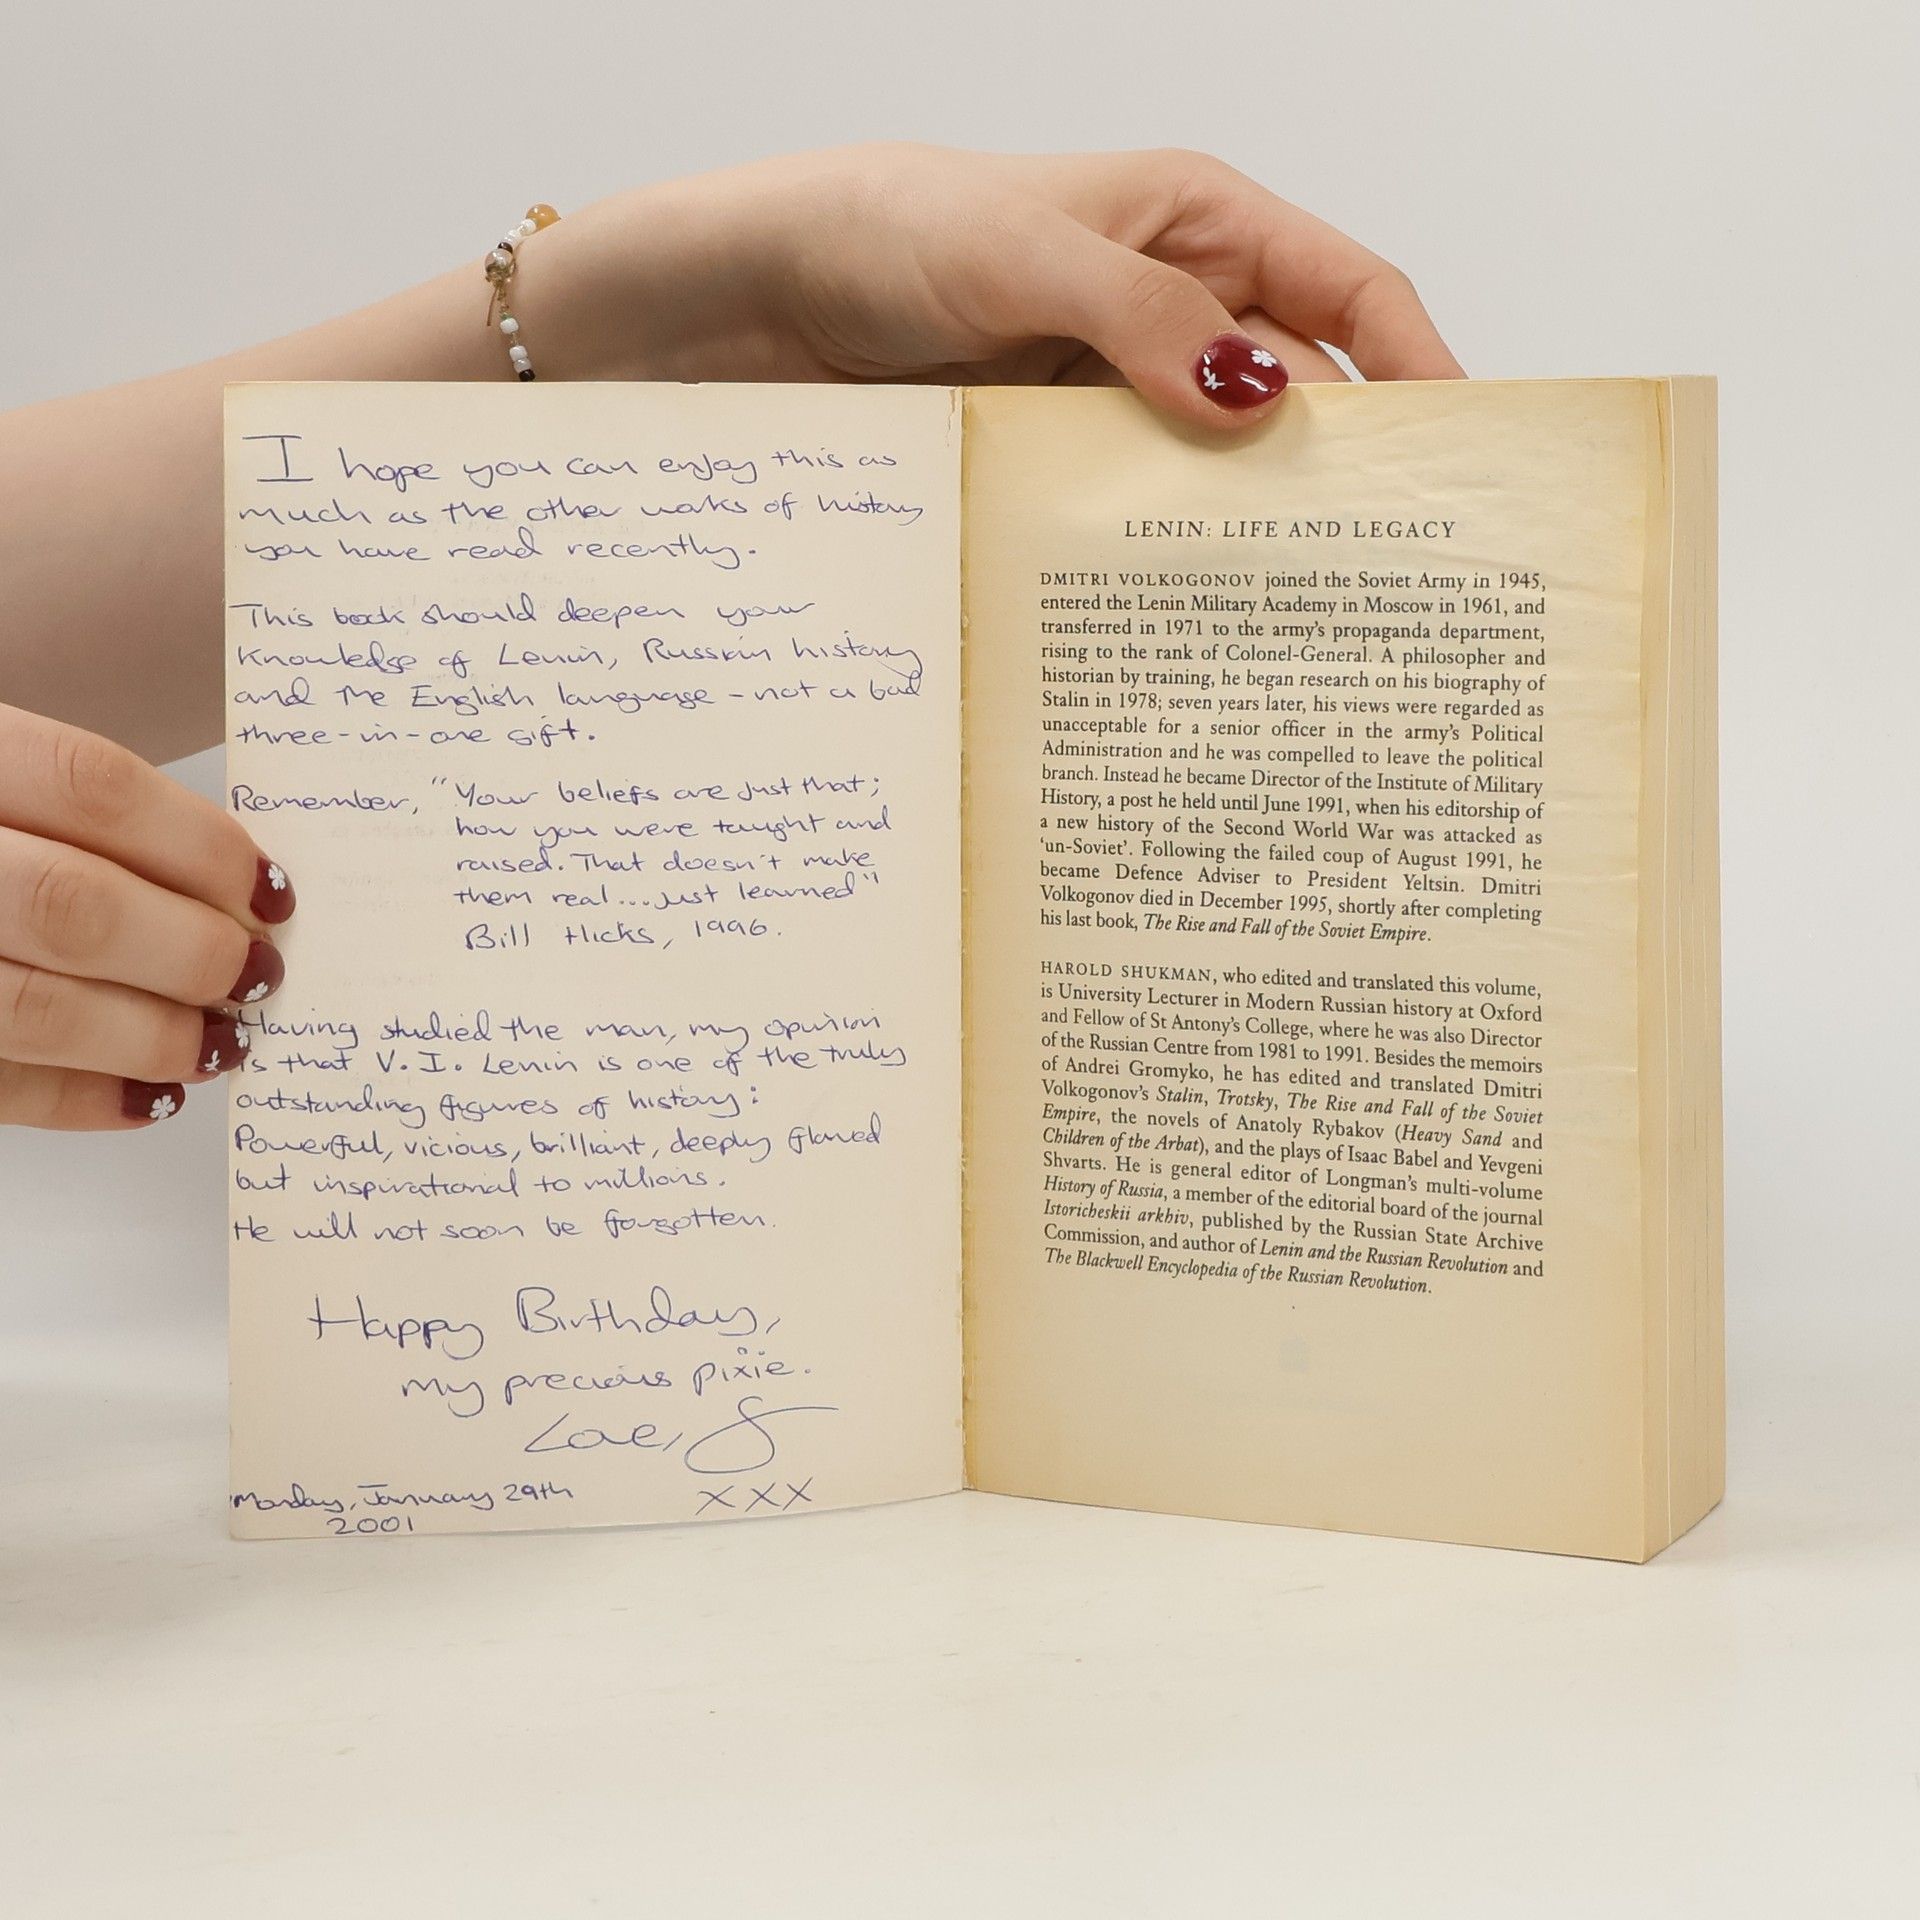 I hope you can enjoy this as
much as the other works of history
you have read recently.
This book should deepen your
knowledge of Lenin, Russian history
and the English language – not a bad
three-in-one gift.
Remember, "Your beliefs are just that;
how you were taught and
raised. That doesn't make
them real...just learned"
Bill Hicks, 1996.
Having studied the man, my opinion
is that V. I. Lenin is one of the truly
outstanding figures of history:
Powerful, vicious, brilliant, deeply flawed
but inspirational to millions.
He will not soon be forgotten.
Happy Birthday,
my precious pixie.
Love,
XXX
Monday, January 29th
2001
LENIN: LIFE AND LEGACY
DMITRI VOLKOGONOV joined the Soviet Army in 1945,
entered the Lenin Military Academy in Moscow in 1961, and
transferred in 1971 to the army's propaganda department,
rising to the rank of Colonel-General. A philosopher and
historian by training, he began research on his biography of
Stalin in 1978; seven years later, his views were regarded as
unacceptable for a senior officer in the army's Political
Administration and he was compelled to leave the political
branch. Instead he became Director of the Institute of Military
History, a post he held until June 1991, when his editorship of
a new history of the Second World War was attacked as
'un-Soviet'. Following the failed coup of August 1991, he
became Defence Adviser to President Yeltsin. Dmitri
Volkogonov died in December 1995, shortly after completing
his last book, The Rise and Fall of the Soviet Empire.
HAROLD SHUKMAN, who edited and translated this volume,
is University Lecturer in Modern Russian history at Oxford
and Fellow of St Antony's College, where he was also Director
of the Russian Centre from 1981 to 1991. Besides the memoirs
of Andrei Gromyko, he has edited and translated Dmitri
Volkogonov's Stalin, Trotsky, The Rise and Fall of the Soviet
Empire, the novels of Anatoly Rybakov (Heavy Sand and
Children of the Arbat), and the plays of Isaac Babel and Yevgeni
Shvarts. He is general editor of Longman's multi-volume
History of Russia, a member of the editorial board of the journal
Istoricheskii arkhiv, published by the Russian State Archive
Commission, and author of Lenin and the Russian Revolution and
The Blackwell Encyclopedia of the Russian Revolution.